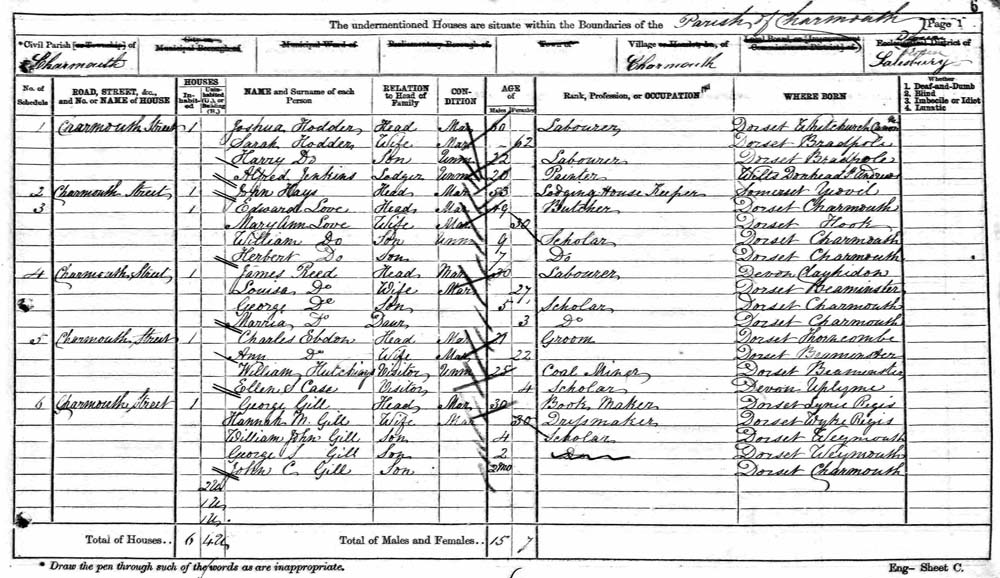 6
The undermentioned Houses are situate within the Boundaries of the Parish of Charmouth [Page 1
*Civil Parish [or Township] of Charmouth
City or Municipal Borough of
Municipal Ward of
Parliamentary Borough of
Town of
Village or Hamlet, &c., of Charmouth
Local Board, or [Improvement Commissioners District] of
Ecclesiastical District of Salisbury
No. of Schedule
ROAD, STREET, &c., and No. or NAME of HOUSE
HOUSES
Inhabited
Uninhabited (U.), or Building (B.)
NAME and Surname of each Person
RELATION to Head of Family
CONDITION
AGE of
Males
Females
Rank, Profession, or OCCUPATION
WHERE BORN
Whether
1. Deaf-and-Dumb
2. Blind
3. Imbecile or Idiot
4. Lunatic
1 Charmouth Street 1 Joshua Hodder Head Mar 60 Labourer Dorset Whitchurch
Sarah Hodder Wife Mar 62 Dorset Bradpole
Harry Do Son Unm 22 Labourer Dorset Bradpole
Alfred Jenkins Lodger Unm 20 Painter Wilts Donhead St Andrews
2 Charmouth Street 1 John Hays Head Mar 53 Lodging House Keeper Somerset Yeovil
3 1 Edward Love Head Mar 49 Butcher Dorset Charmouth
Mary Ann Love Wife Mar 30 Dorset Hook
William Do Son Unm 9 Scholar Dorset Charmouth
Herbert Do Son 7 Do Dorset Charmouth
4 Charmouth Street 1 James Reed Head Mar 30 Labourer Devon Clayhidon
Louisa Do Wife Mar 27 Dorset Beaminster
George Do Son 5 Scholar Dorset Charmouth
Marria Do Daur 3 Do Dorset Charmouth
5 Charmouth Street 1 Charles Ebdon Head Mar Groom Dorset Thorncombe
Ann Do Wife Mar 22 Dorset Beaminster
William Hutchings Visitor Unm 28 Coal Miner Dorset Beaminster
Ellen S Case Visitor 4 Scholar Devon Uplyme
6 Charmouth Street 1 George Gill Head Mar 30 Book Maker Dorset Lyme Regis
Hannah M. Gill Wife Mar 30 Dressmaker Dorset Wyke Regis
William John Gill Son 4 Scholar Dorset Weymouth
George S Gill Son 2 Do Dorset Weymouth
John C Gill Son 2mo Dorset Charmouth
2U
1U
1U
Total of Houses.. 6 4U Total of Males and Females.. 15 7
* Draw the pen through such of the words as are inappropriate. Eng- Sheet C.